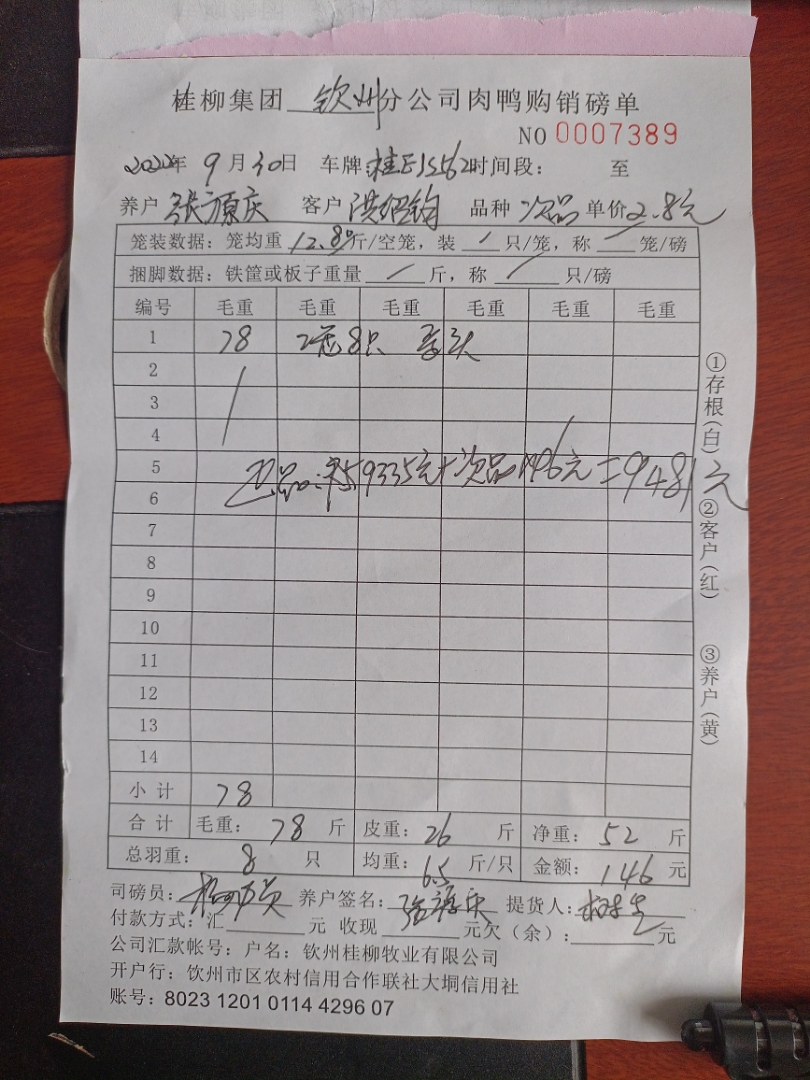 桂柳集团 钦州 分公司肉鸭购销磅单
NO 0007389
2022年 9月30日 车牌: 桂E15562 时间段: 至
养户 张源庆 客户 洪绍钧 品种 次品 单价 2.8元
笼装数据: 笼均重 12.8 斤/空笼, 装 只/笼, 称 笼/磅
捆脚数据: 铁筐或板子重量 斤, 称 只/磅
编号 毛重 毛重 毛重 毛重 毛重 毛重
1 78 2笼8只
2
3
4
5
正品: 9335元+次品146元=9481元
6
7
8
9
10
11
12
13
14
小计 78
合计 毛重: 78 斤 皮重: 26 斤 净重: 52 斤
总羽重: 8 只 均重: 6.5 斤/只 金额: 146 元
司磅员: 养户签名: 张源庆 提货人:
付款方式: 汇 元 收现 元欠(余): 元
公司汇款帐号: 户名: 钦州桂柳牧业有限公司
开户行: 钦州市区农村信用合作联社大垌信用社
账号: 8023 1201 0114 4296 07
①存根(白) ②客户(红) ③养户(黄)